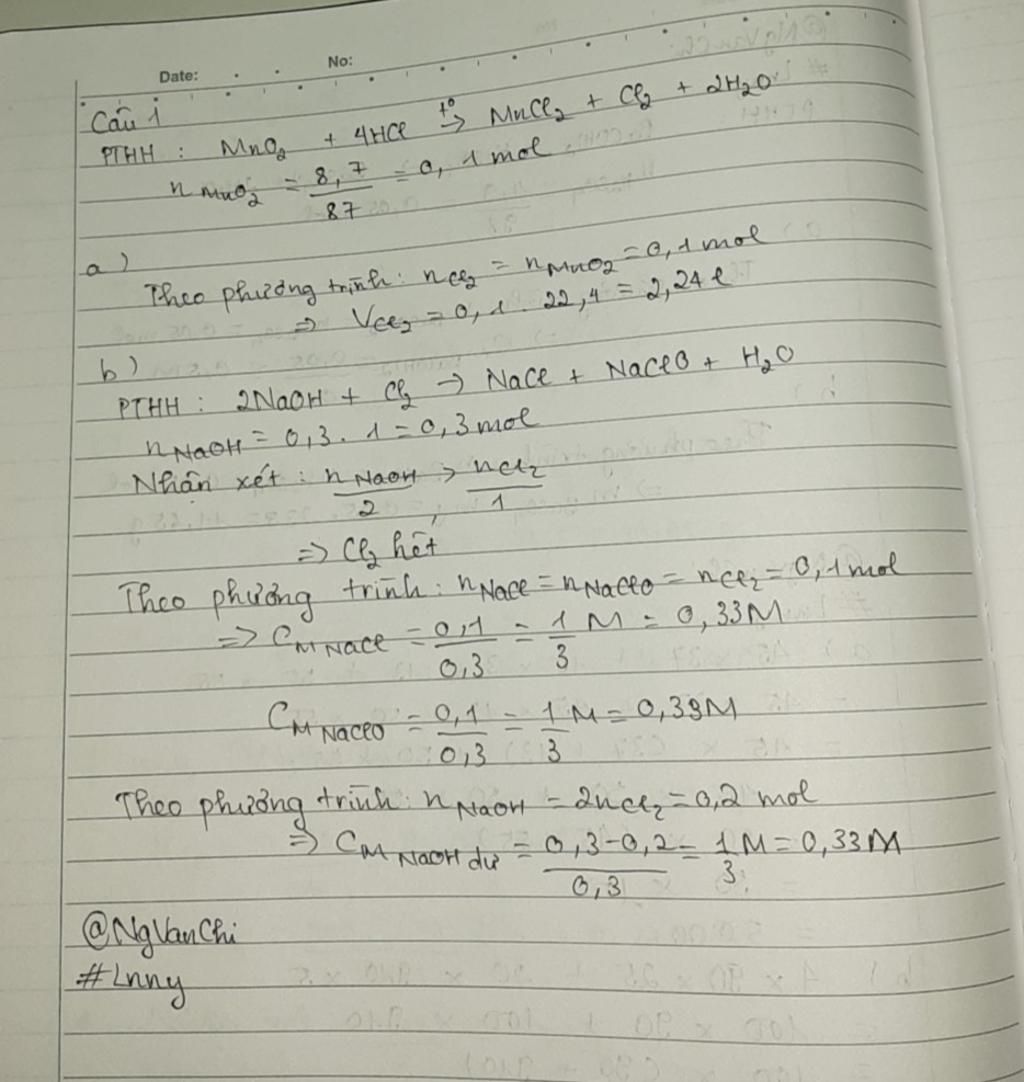 Date: No:
Câu 1
PTHH : MnO₂ + 4HCl t°→ MnCl₂ + Cl₂ + 2H₂O
n MnO₂ = 8,7/87 = 0,1 mol
a)
Theo phương trình: nCl₂ = nMnO₂ = 0,1 mol
=> VCl₂ = 0,1 . 22,4 = 2,24 l
b)
PTHH : 2NaOH + Cl₂ → NaCl + NaClO + H₂O
nNaOH = 0,3 . 1 = 0,3 mol
Nhân xét : nNaOH/2 > nCl₂/1
=> Cl₂ hết
Theo phương trình : nNaCl = nNaClO = nCl₂ = 0,1 mol
=> CM NaCl = 0,1/0,3 = 1/3 M = 0,33M
CM NaClO = 0,1/0,3 = 1/3 M = 0,33M
Theo phương trình: nNaOH = 2nCl₂ = 0,2 mol
=> CM NaOH dư = 0,3-0,2/0,3 = 1/3 M = 0,33M
@NgVanChi
#Lnny